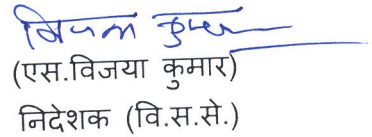 विजया कुमार
(एस.विजया कुमार)
निदेशक (वि.स.से.)